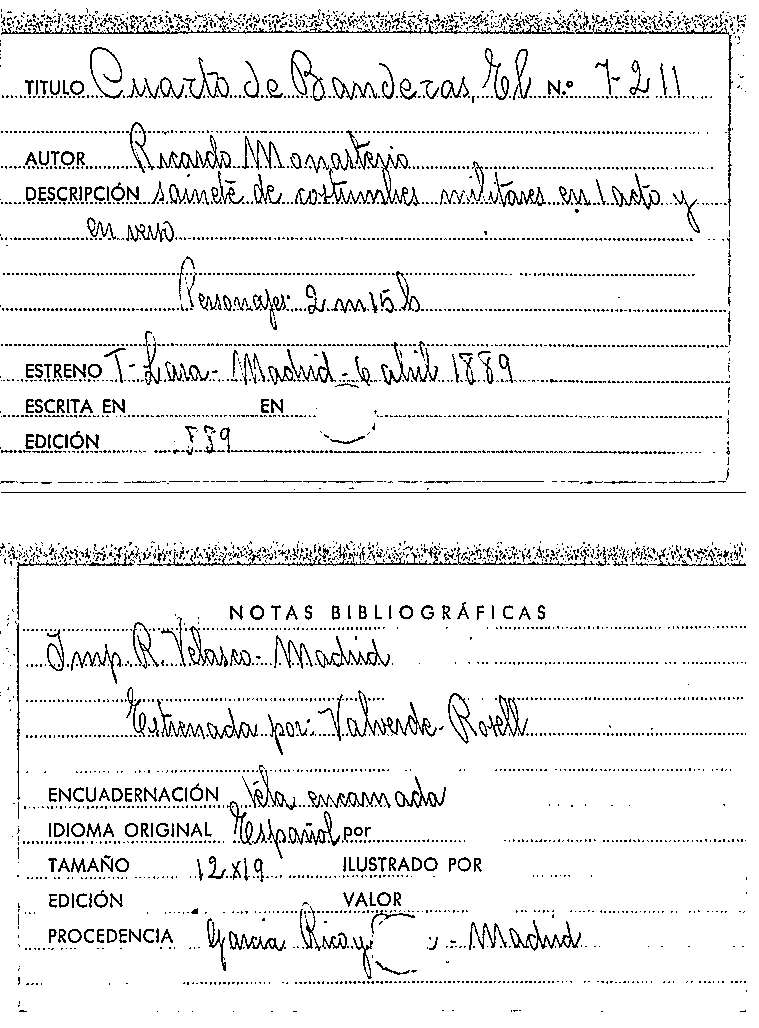 TITULO Cuarto de Banderas, El N.º 7-211
AUTOR Ricardo Monasterio
DESCRIPCIÓN sainete de costumbres militares en 1 acto y
en verso
Personajes: 2 m 15 h
ESTRENO T-Lara-Madrid-6 abril 1889
ESCRITA EN EN
EDICIÓN 889
NOTAS BIBLIOGRÁFICAS
Imp. R. Velasco-Madrid
Estrenada por: Valverde-Rosell
ENCUADERNACIÓN tela encarnada
IDIOMA ORIGINAL Español por
TAMAÑO 12x19 ILUSTRADO POR
EDICIÓN VALOR
PROCEDENCIA Garcia Rico y - Madrid